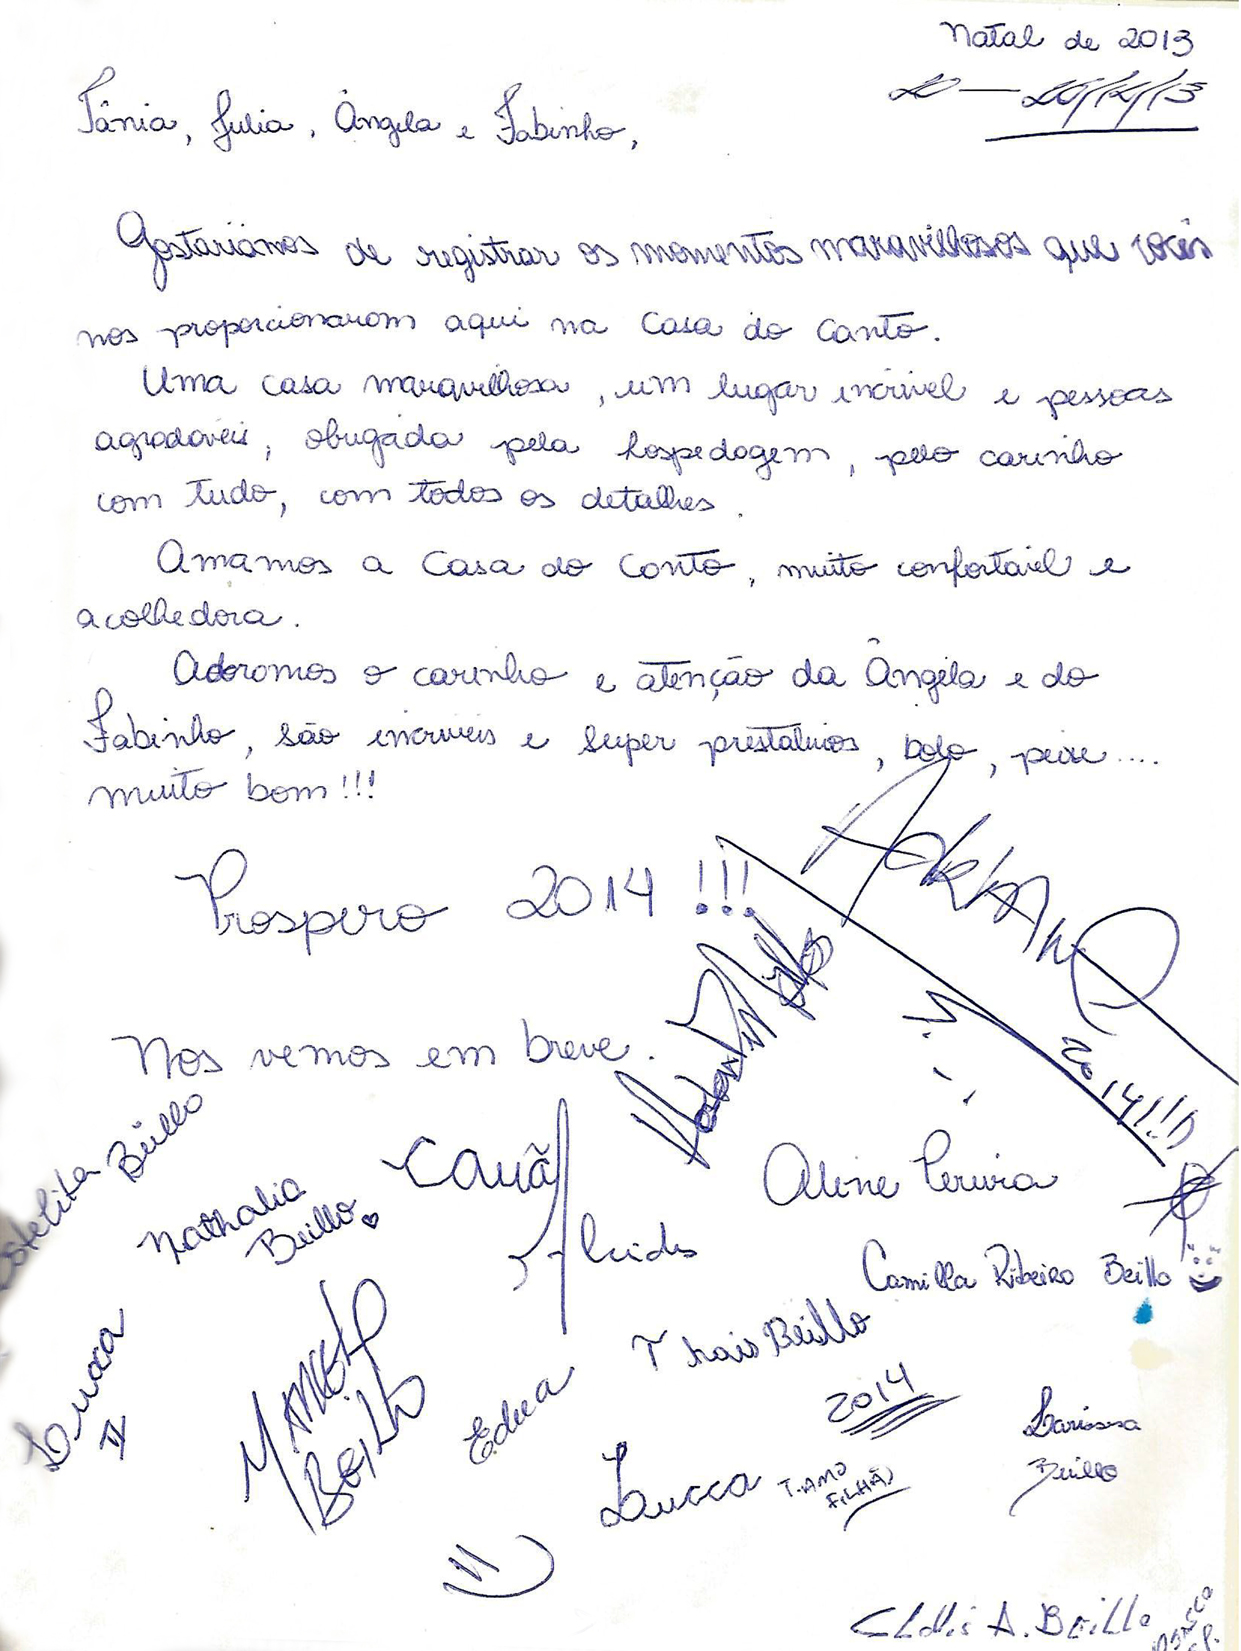 Natal de 2013
20 — 26/12/13
Tânia, Julia, Ângela e Fabinho,
Gostariamos de registrar os momentos maravilhosos que vocês
nos proporcionaram aqui na Casa do Canto.
Uma casa maravilhosa, um lugar incrível e pessoas
agradáveis, obrigada pela hospedagem, pelo carinho
com tudo, com todos os detalhes.
Amamos a Casa do Canto, muito confortável e
acolhedora.
Adoramos o carinho e atenção da Ângela e do
Fabinho, são incriveis e super prestativos, bolo, peixe....
muito bom!!!
Prospero 2014 !!!
Adriano
2014!!!
Nos vemos em breve.
Beillo
Nathalia
Beillo
Cauã
Alcides
Aline Pereira
Camilla Ribeiro Beillo
Thais Beillo
Marcelo
Beillo
Edna
2014
Lucca
T. AMO
FILHÃO
Larissa
Beillo
A. Beillo